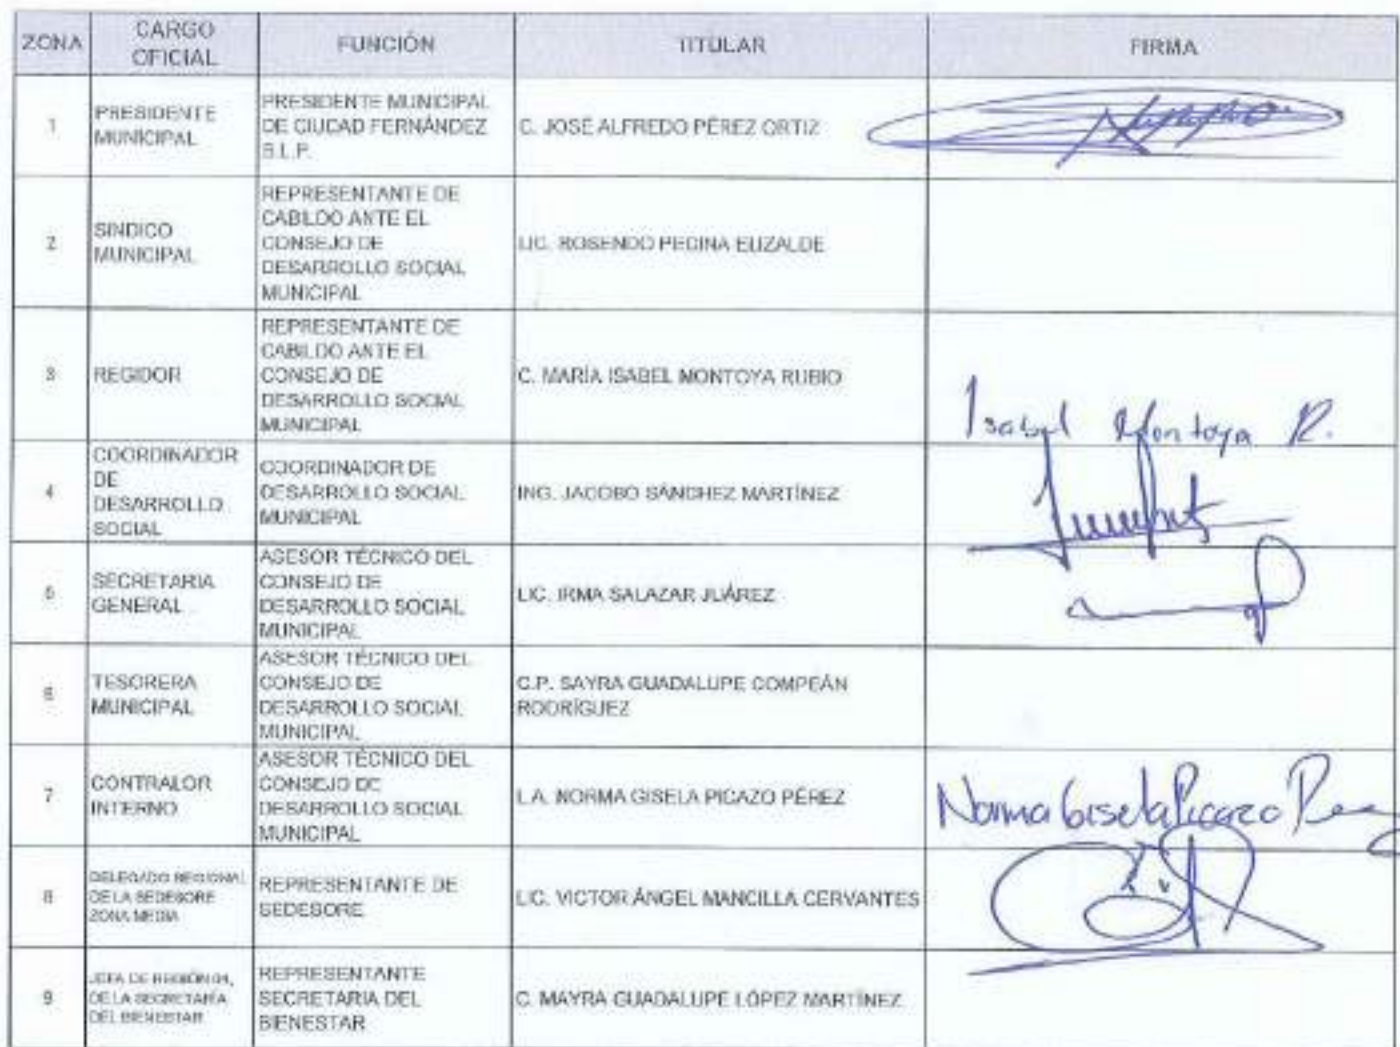 ZONA
CARGO
OFICIAL
FUNCIÓN
TITULAR
FIRMA
1
PRESIDENTE
MUNICIPAL
PRESIDENTE MUNICIPAL
DE CIUDAD FERNÁNDEZ
S.L.P.
C. JOSÉ ALFREDO PÉREZ ORTIZ
2
SINDICO
MUNICIPAL
REPRESENTANTE DE
CABILDO ANTE EL
CONSEJO DE
DESARROLLO SOCIAL
MUNICIPAL
LIC. ROSENDO PECINA ELIZALDE
3
REGIDOR
REPRESENTANTE DE
CABILDO ANTE EL
CONSEJO DE
DESARROLLO SOCIAL
MUNICIPAL
C. MARÍA ISABEL MONTOYA RUBIO
Isabel Montoya R.
4
COORDINADOR
DE
DESARROLLO
SOCIAL
COORDINADOR DE
DESARROLLO SOCIAL
MUNICIPAL
ING. JACOBO SÁNCHEZ MARTÍNEZ
5
SECRETARIA
GENERAL
ASESOR TÉCNICO DEL
CONSEJO DE
DESARROLLO SOCIAL
MUNICIPAL
LIC. IRMA SALAZAR JUÁREZ
6
TESORERA
MUNICIPAL
ASESOR TÉCNICO DEL
CONSEJO DE
DESARROLLO SOCIAL
MUNICIPAL
C.P. SAYRA GUADALUPE COMPEÁN
RODRÍGUEZ
7
CONTRALOR
INTERNO
ASESOR TÉCNICO DEL
CONSEJO DE
DESARROLLO SOCIAL
MUNICIPAL
L.A. NORMA GISELA PICAZO PÉREZ
Norma Gisela Picazo
8
DELEGADO REGIONAL
DE LA SEDESORE
ZONA MEDIA
REPRESENTANTE DE
SEDESORE
LIC. VICTOR ÁNGEL MANCILLA CERVANTES
9
JEFA DE REGIÓN 04,
DE LA SECRETARÍA
DEL BIENESTAR
REPRESENTANTE
SECRETARIA DEL
BIENESTAR
C. MAYRA GUADALUPE LÓPEZ MARTÍNEZ